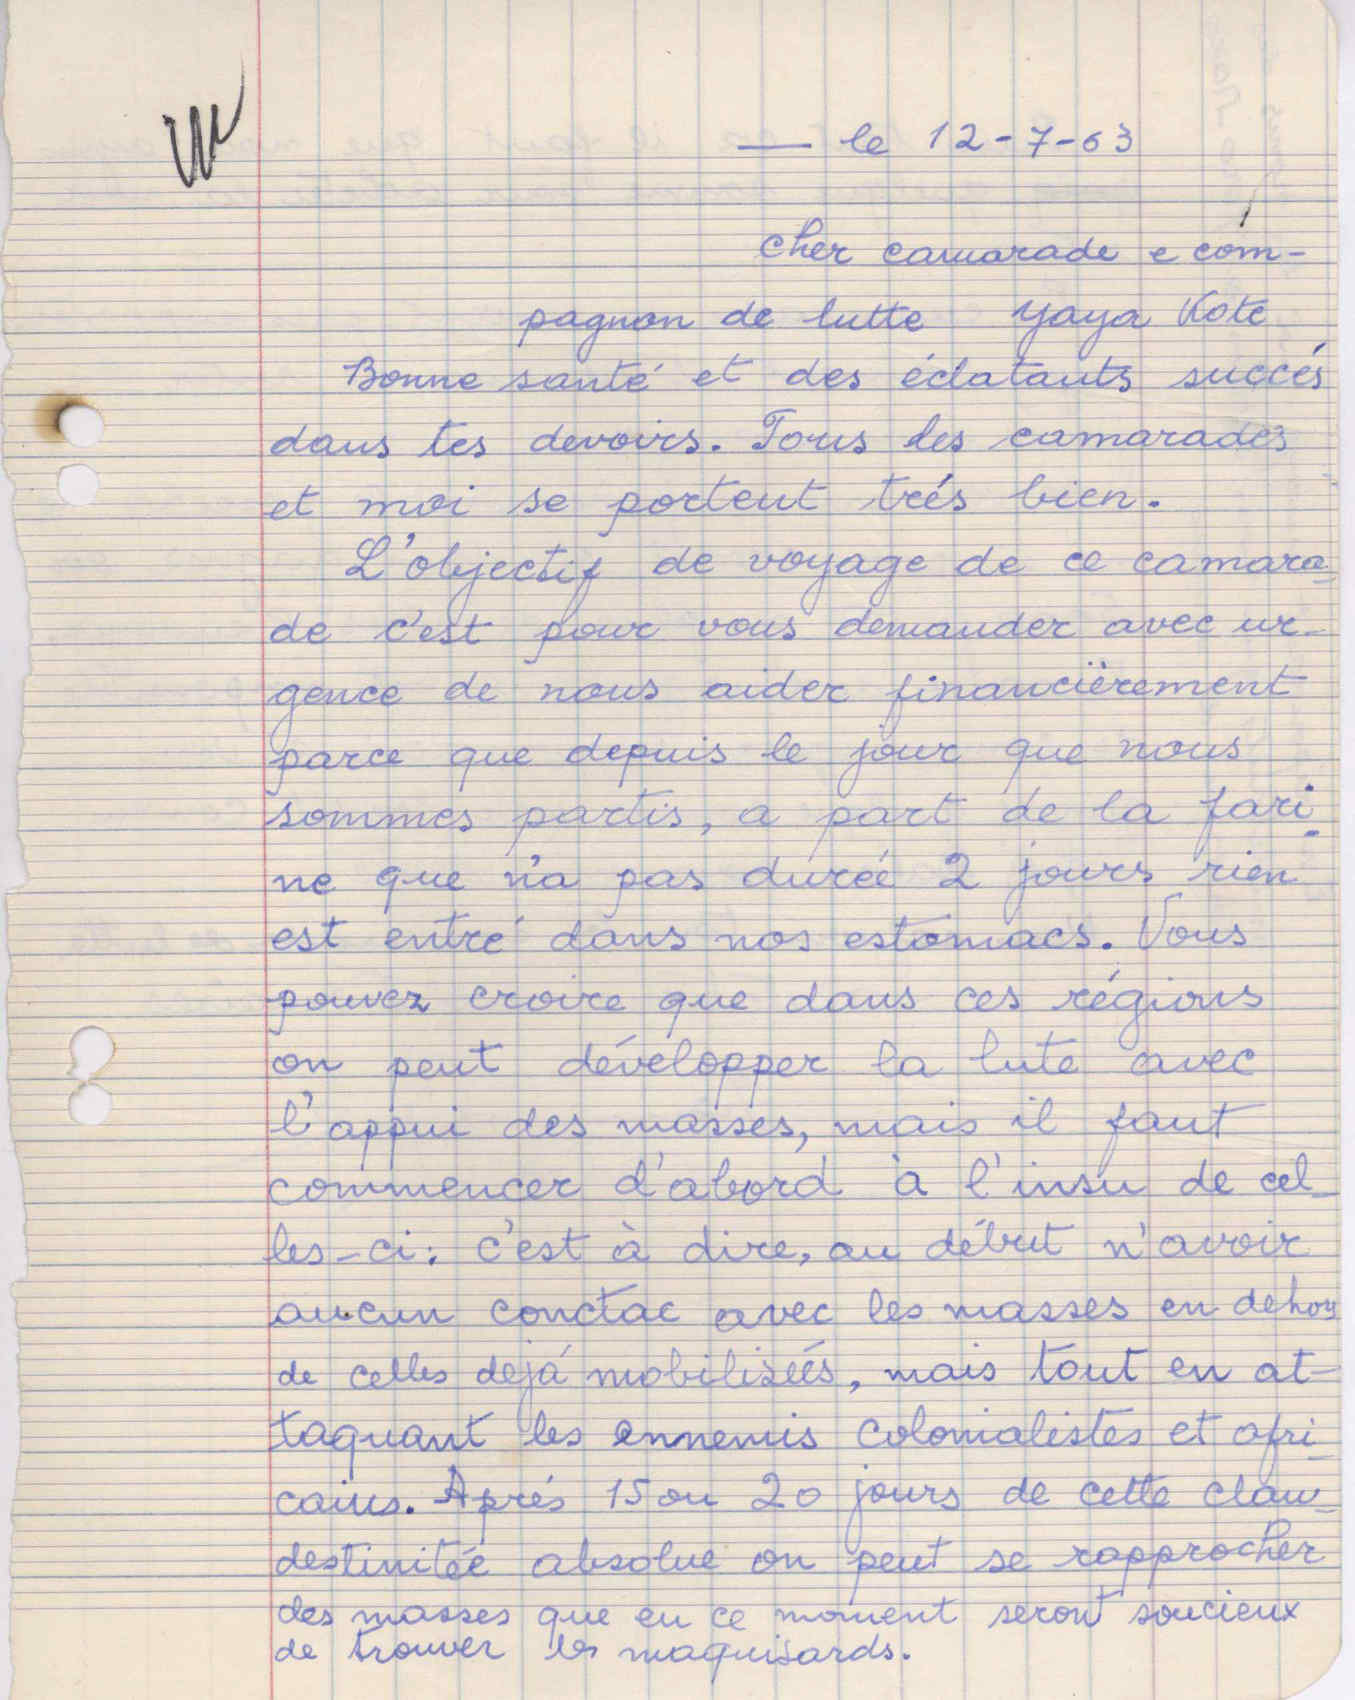 — le 12-7-63
cher camarade e com-
pagnon de lutte Yaya Koté
Bonne santé et des éclatants succés
dans tes devoirs. Tous les camarades
et moi se portent trés bien.
L'objectif de voyage de ce camara-
de c'est pour vous demander avec ur-
gence de nous aider financièrement
parce que depuis le jour que nous
sommes partis, a part de la fari-
ne que n'a pas durée 2 jours rien
est entré dans nos estomacs. Vous
pouvez croire que dans ces régions
on peut développer la lute avec
l'appui des masses, mais il faut
commencer d'abord à l'insu de cel-
les-ci: c'est à dire, au début n'avoir
aucun conctac avec les masses en dehors
de celles dejá mobilisées, mais tout en at-
taquant les ennemis colonialistes et afri-
cains. Aprés 15 ou 20 jours de cette clan-
destinitée absolue on peut se rapprocher
des masses que en ce moment seront soucieux
de trouver les maquisards.